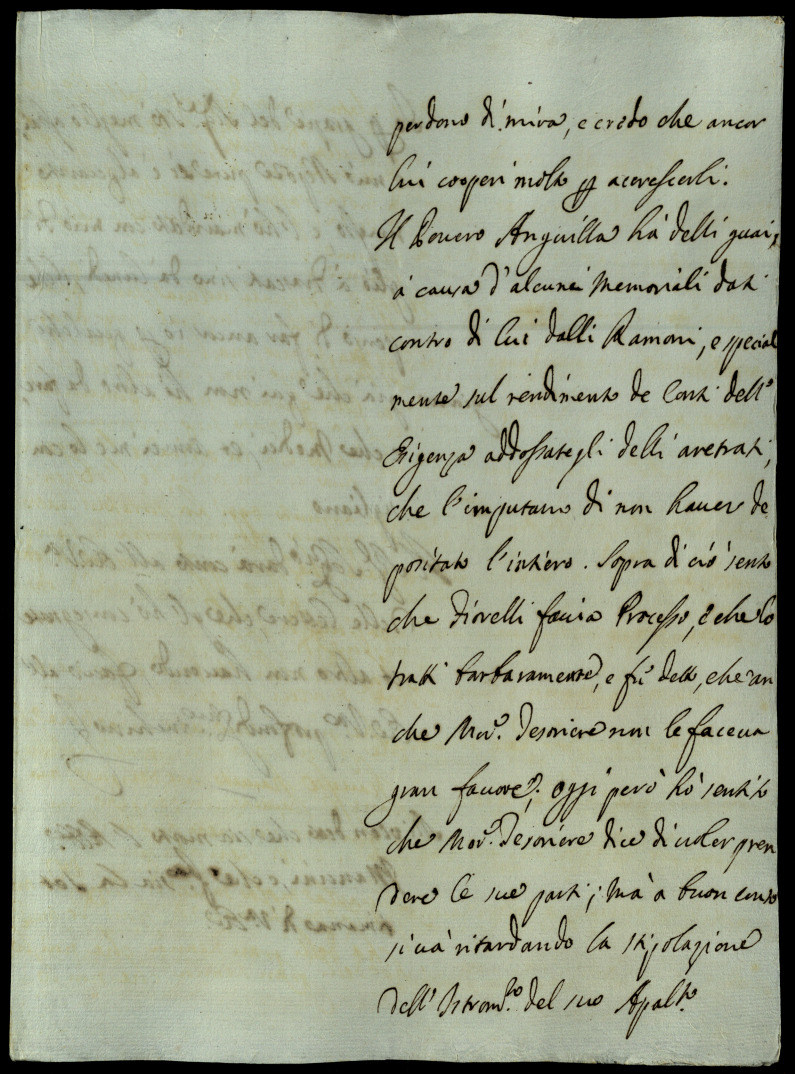 perdono di mira, e credo che ancor
lui cooperi molto p accrescerli.
Il Povero Anguilla hà delli guai,
à causa d'alcuni Memoriali dati
contro di lui dalli Ramoni, e special
mente sul rendimento de Conti dell'
Esigenza addossategli delli aretrati,
che l'imputano di non haver de
positato l'intiero. Sopra di ciò sento
che Fiorelli faccia Processo, e che lo
tratti barbaramente, e fù detto, che an
che Mon.r Tesoriere non le faceva
gran favore; oggi però hò sentito
che Mon.r Tesoriere dice di voler pren
dere le sue parti; mà a buon conto
si và ritardando la stipolazione
dell' Istrom.to del suo Apalto.